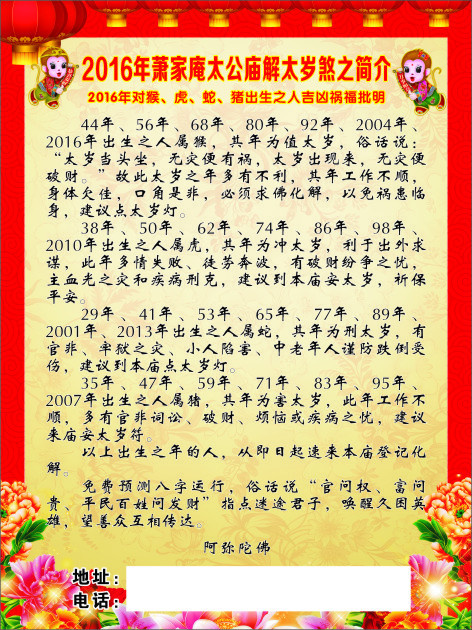 2016年萧家庵太公庙解太岁煞之简介
2016年对猴、虎、蛇、猪出生之人吉凶祸福批明
44年、56年、68年、80年、92年、2004年、
2016年出生之人属猴，其年为值太岁，俗话说：
“太岁当头坐，无灾便有祸，太岁出现来，无灾便
破财。”故此太岁之年多有不利，其年工作不顺，
身体欠佳，口角是非，必须求佛化解，以免祸患临
身，建议点太岁灯。
38年、50年、62年、74年、86年、98年、
2010年出生之人属虎，其年为冲太岁，利于出外求
谋，此年多情失败、徒劳奔波，有破财纷争之忧，
主血光之灾和疾病刑克，建议到本庙安太岁，祈保
平安。
29年、41年、53年、65年、77年、89年、
2001年、2013年出生之人属蛇，其年为刑太岁，有
官非、牢狱之灾、小人陷害、中老年人谨防跌倒受
伤，建议到本庙点太岁灯。
35年、47年、59年、71年、83年、95年、
2007年出生之人属猪，其年为害太岁，此年工作不
顺，多有官非词讼、破财、烦恼或疾病之忧，建议
来庙安太岁符。
以上出生之年的人，从即日起速来本庙登记化
解。
免费预测八字运行，俗话说“官问权、富问
贵、平民百姓问发财”指点迷途君子，唤醒久困英
雄，望善众互相传达。
阿弥陀佛
地址：
电话：